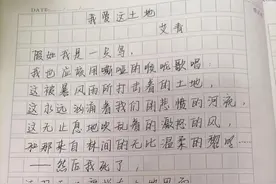 DATE
我爱这土地
艾青
假如我是一只鸟,
我也应该用嘶哑的喉咙歌唱:
这被暴风雨所打击着的土地,
这永远汹涌着我们的悲愤的河流,
这无止息地吹刮着的激怒的风,
和那来自林间的无比温柔的黎明……
——然后我死了,